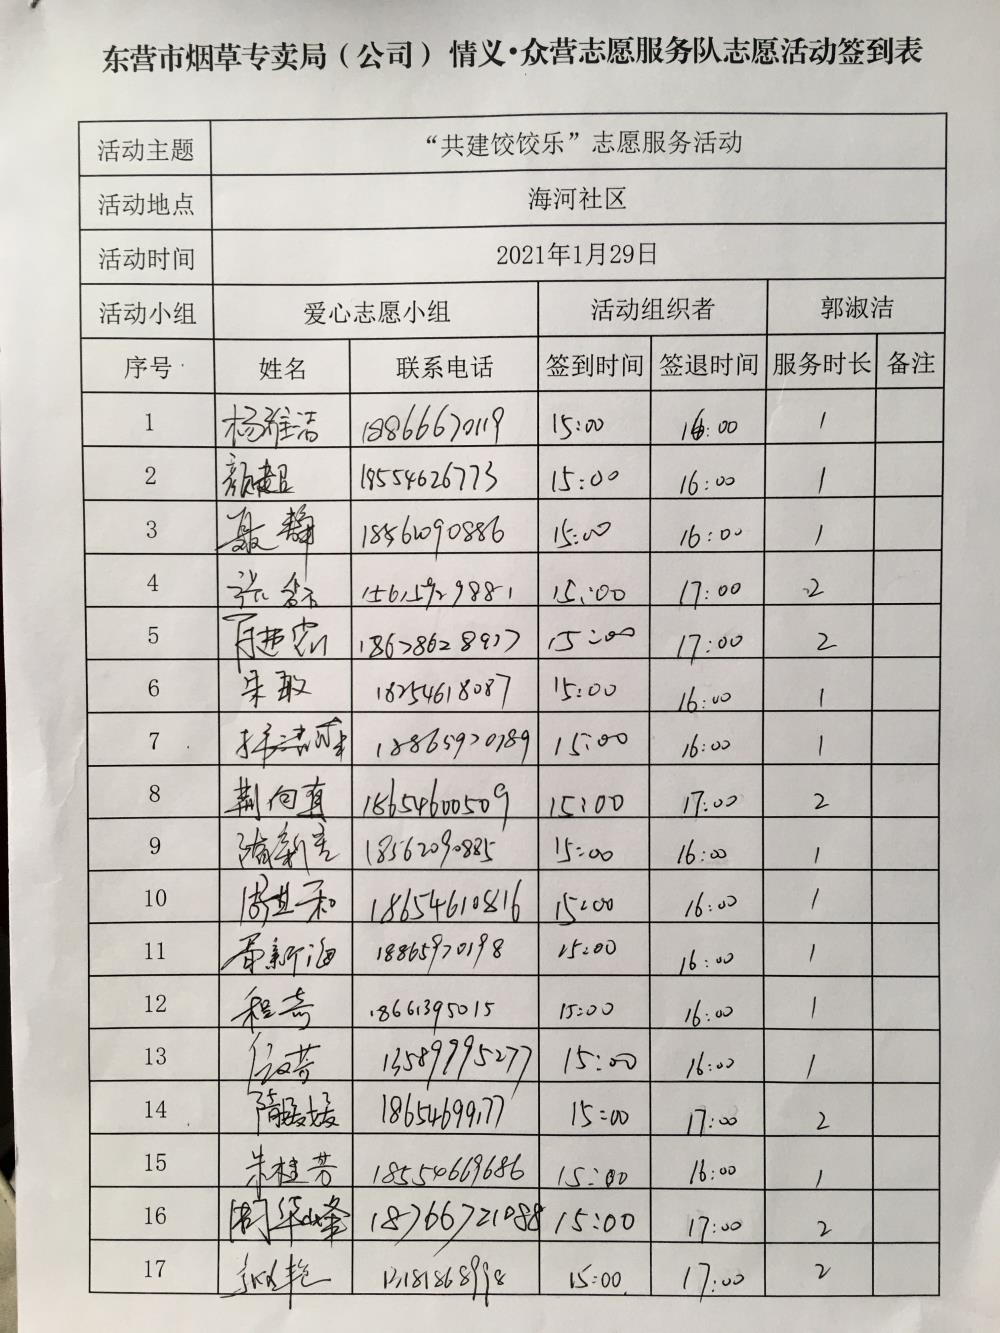 东营市烟草专卖局（公司）情义·众营志愿服务队志愿活动签到表
活动主题 “共建饺饺乐”志愿服务活动
活动地点 海河社区
活动时间 2021年1月29日
活动小组 爱心志愿小组 活动组织者 郭淑洁
序号 姓名 联系电话 签到时间 签退时间 服务时长 备注
1 杨雅洁 18866670119 15:00 16:00 1
2 颜超 18554626773 15:00 16:00 1
3 聂静 18562090886 15:00 16:00 1
4 15:00 17:00 2
5 15:00 17:00 2
6 宋敏 18254618087 15:00 16:00 1
7 18865970189 15:00 16:00 1
8 荆向真 18654600509 15:00 17:00 2
9 隋新 18562090885 15:00 16:00 1
10 18654610816 15:00 16:00 1
11 新海 18865970198 15:00 16:00 1
12 程奇 18661395015 15:00 16:00 1
13 13589995277 15:00 16:00 1
14 隋媛媛 18654699177 15:00 17:00 2
15 朱桂芳 18554669686 15:00 16:00 1
16 周华峰 18766721088 15:00 17:00 2
17 艳 13181868998 15:00 17:00 2